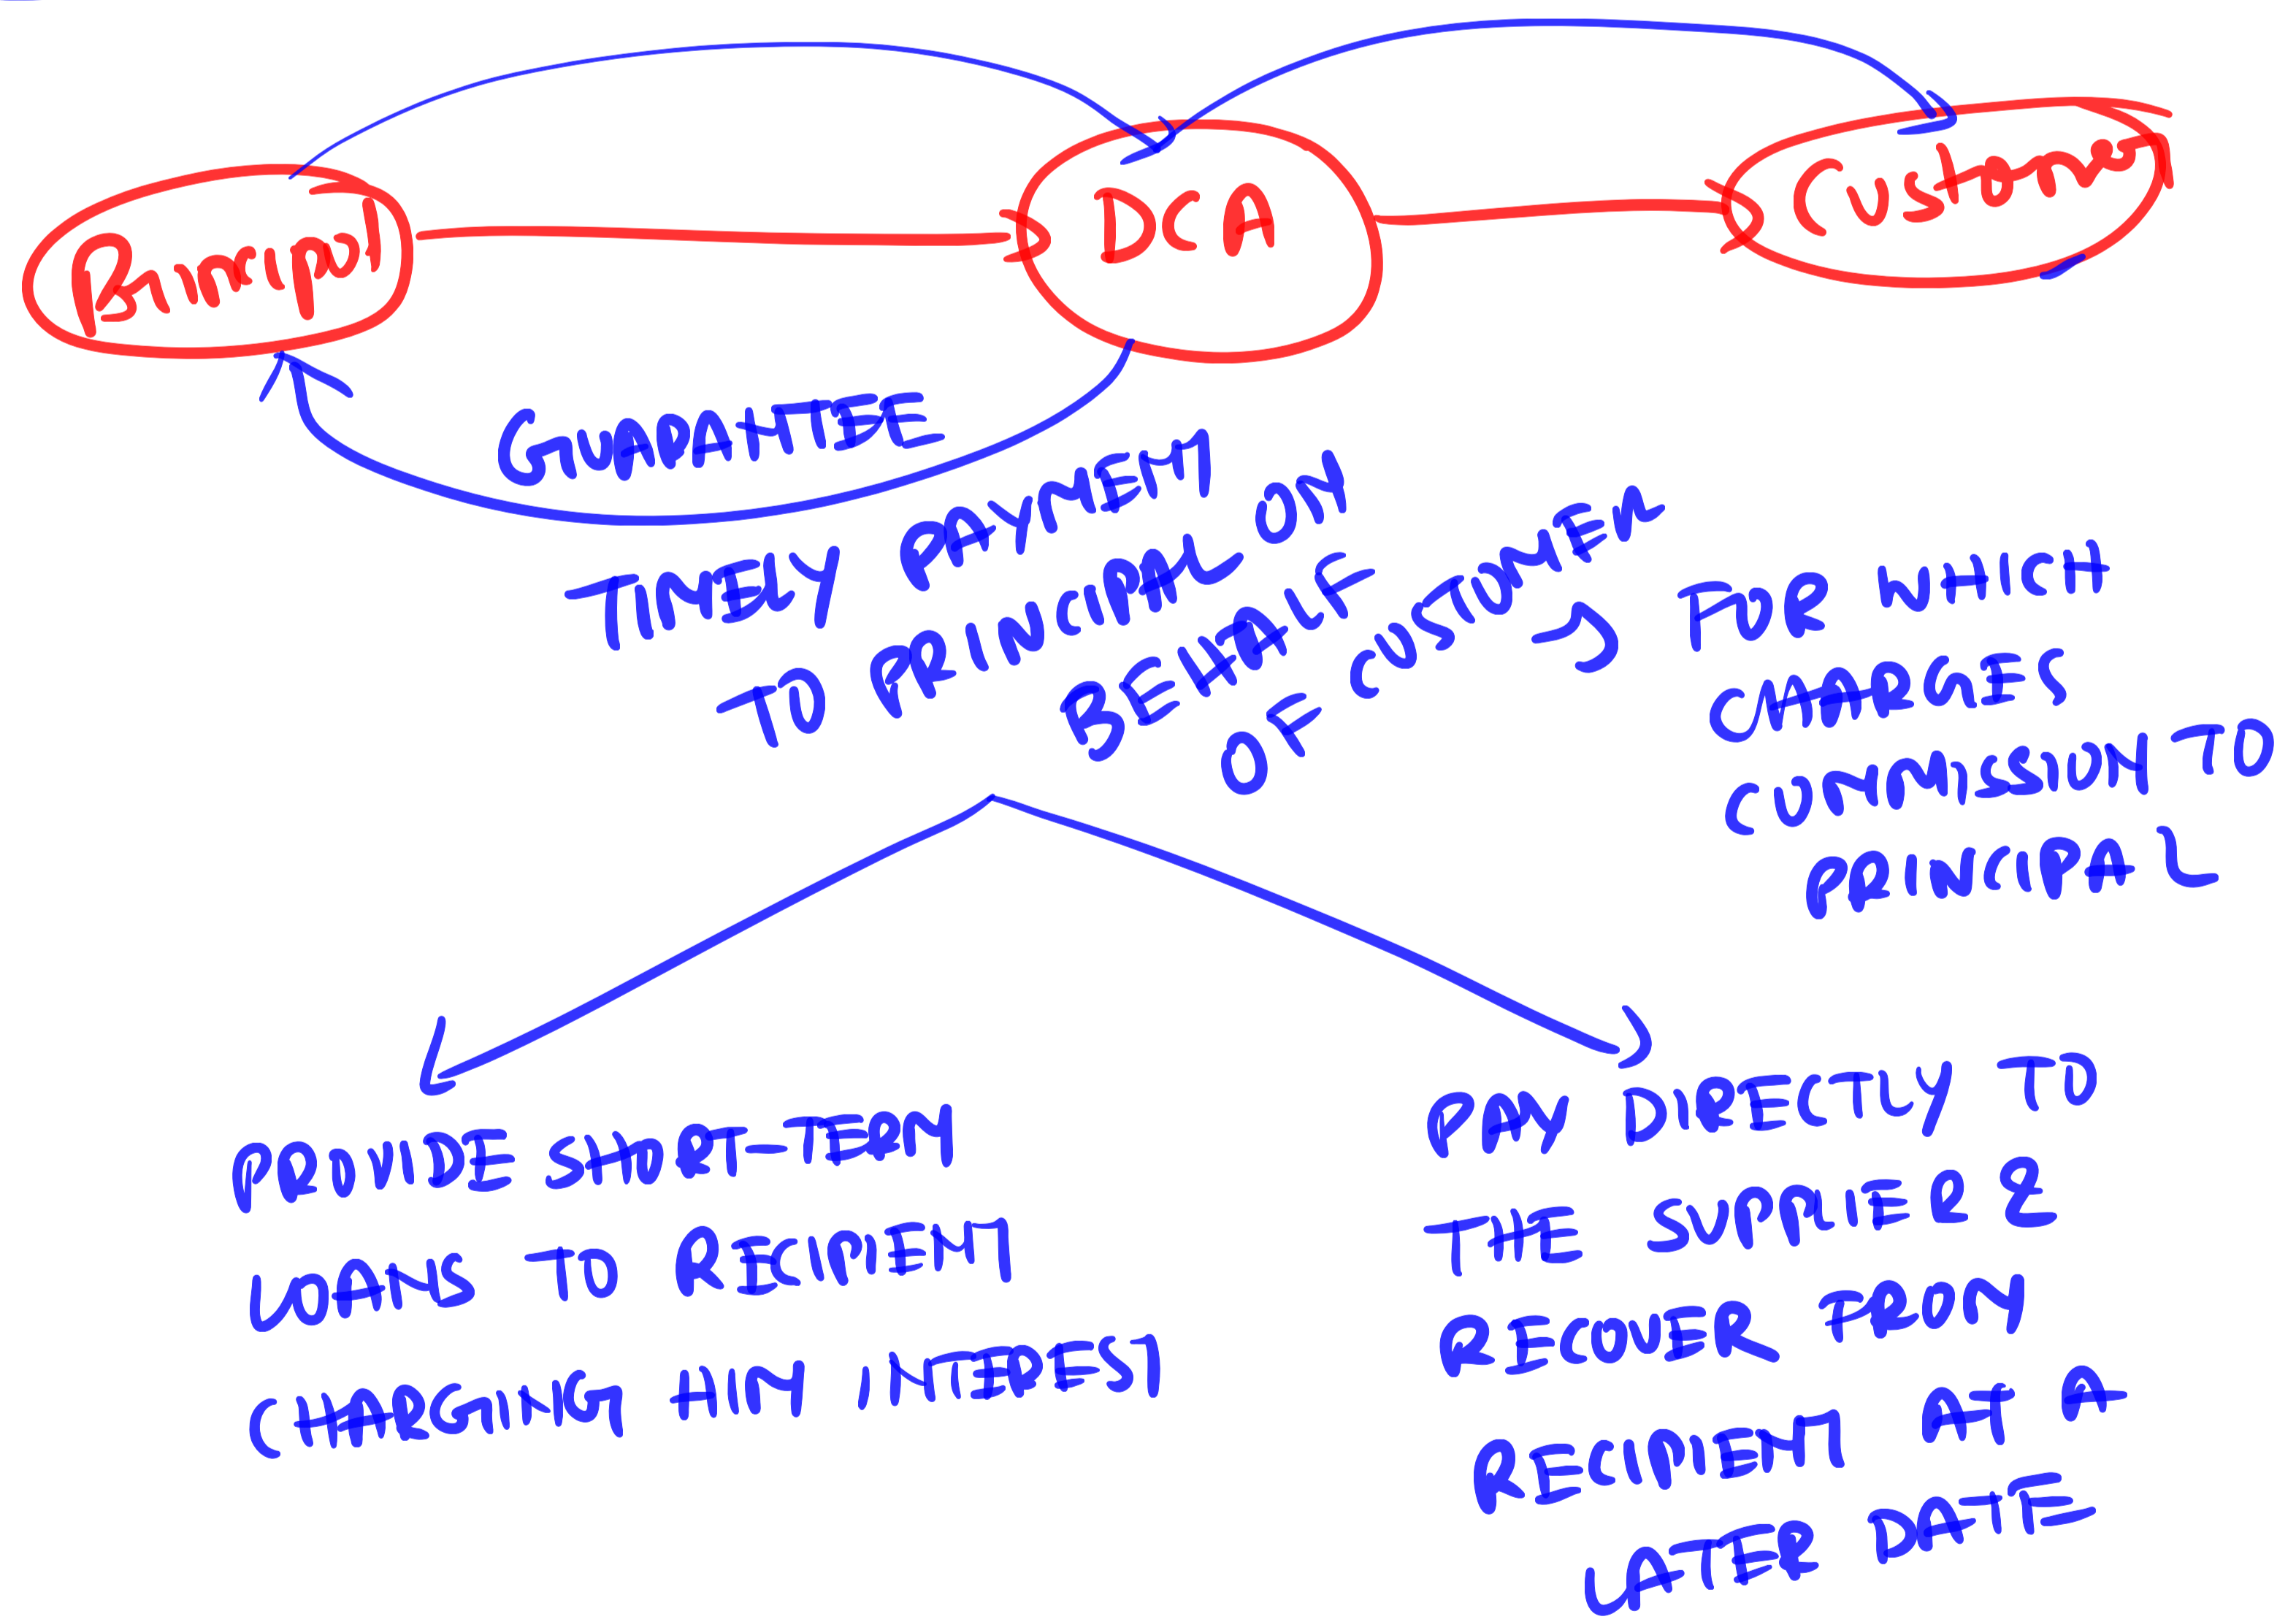 Principal
DCA
Customer
GUARANTEE
TIMELY PAYMENT
TO PRINCIPAL ON
BEHALF
OF CUSTOMER
FOR WHICH
CHARGES
COMMISSION TO
PRINCIPAL
PROVIDE SHORT-TERM
LOANS TO RECIPIENT
CHARGING HIM INTEREST
PAY DIRECTLY TO
THE SUPPLIER &
RECOVER FROM
RECIPIENT AT A
LATER DATE